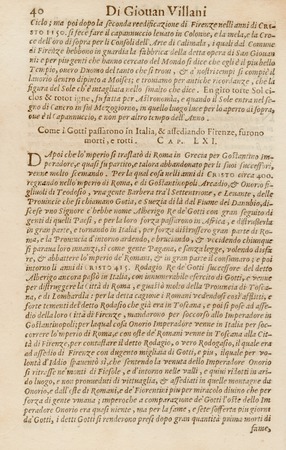 40 Di Giouan Villani
Ciclo; ma poi dopo la seconda reedificatione di Firenze nelli anni di CRI-
STO 1150. si fece fare il capannuccio leuato in Colonne, e la mela, e la Cro-
ce dell'oro di sopra per li Consoli dell'Arte di Calimala, i quali dal Comune
di Firenze hebbono in guardia la fabbrica della detta opera di San Giouan
ni: e per piu genti che hanno cercato del Mondo si dice che egli è il piu bello
Tempio, ouero Duomo del tanto che si truoui; & a' nostri tempi si compiè il
lauorio dentro dipinto a Mosee; e trouiamo per antiche ricordanze, che la
figura del Sole ch'è intagliata nello smalto che dice. En giro torte Sol ci-
clos & rotor igne, fu fatta per Astronomia, e quando il Sole entra nel se-
gno di Cancro in sul Mezogiorno, in quello luogo luce per lo aperto di sopra,
oue è il capannuccio, e non per altro tempo dell'Anno.
Come i Gotti passarono in Italia, & assediando Firenze, furono
morti, e rotti. CAP. LXI.
DApoi che lo'mperio fu traslatò di Roma in Grecia per Gostantino Im-
peradore, e quasi fu partito, e talora abbandonato per li suoi successori,
venne molto scemando. Per la qual cosa nelli anni di CRISTO circa 400.
regnando nello mperio di Roma, e di Gostantinopoli Arcadio, & Onorio fi-
gliuoli di Teodosio, vna gente Barbera tra'l Settentrione, e Leuante, delle
Prouincie che si chiamano Gotia, e Suezia di là dal Fiume del Dannbio, di-
scese vno Signore c'hebbe nome Alberigo Re de' Gotti con gran seguito di
genti di quelli Paesi, e per la loro forza passarono in Africa, e distrussersla
in gran parte, e tornando in Italia, per forza distrussero gran parte di Ro-
ma, e la Prouincia d'intorno ardendo, e bruciando, & vccidendo chiunque
si paraua loro innanzi, sì come gente Pagana, e senza legge, volendo disfa-
re, & abbattere lo'mperio de' Romani, & in gran parte il consumaro; e poi
intorno li anni di CRISTO 415. Rodagio Re de' Gotti successore del detto
Alberigo ancora passò in Italia, con innumerabile esercito di Gotti, e venne
per distruggere la Città di Roma, e guastò molto della Prouincia di Tosca-
na, e di Lombardia: per la detta cagione i Romani vedendosi così afflitti, e
forte tementi del detto Rodasio che già era in Toscana, e poi si posò ad asse-
dio della loro Città di Firenze, mandorono per soccorso allo Imperadore in
Gostantinopoli; per la qual cosa Onorio Imperadore venne in Italia per soc-
correre lo'mperio di Roma, e con oste de' Romani venne in Toscana alla Cit-
tà di Firenze, per contastare il detto Rodagio, o vero Rodogasio, il quale era
ad assedio di Firenze con dugento migliaia di Gotti, e piu, il quale per vo-
lontà d'Iddio spauentò sì, che sentendo la venuta dello Imperadore Onorio
si ritrasse ne' monti di Fiesole, e d'intorno nelle valli, e quiui ridotti in ari-
do luogo, e non proueduti di vittuaglia, & assediati in quelle montagne da
Onorio, e dall'oste di Romani, e de' Fiorentini piu per miracolo diuino che per
forza di gente vmana; imperoche a comparatione de' Gotti l'oste dello Im-
peradore Onorio era quasi niente, ma per la fame, e sete sofferta piu giorni
da' Gotti, i detti Gotti rendendosi presi dopo gran quantità prima morti di
fame,